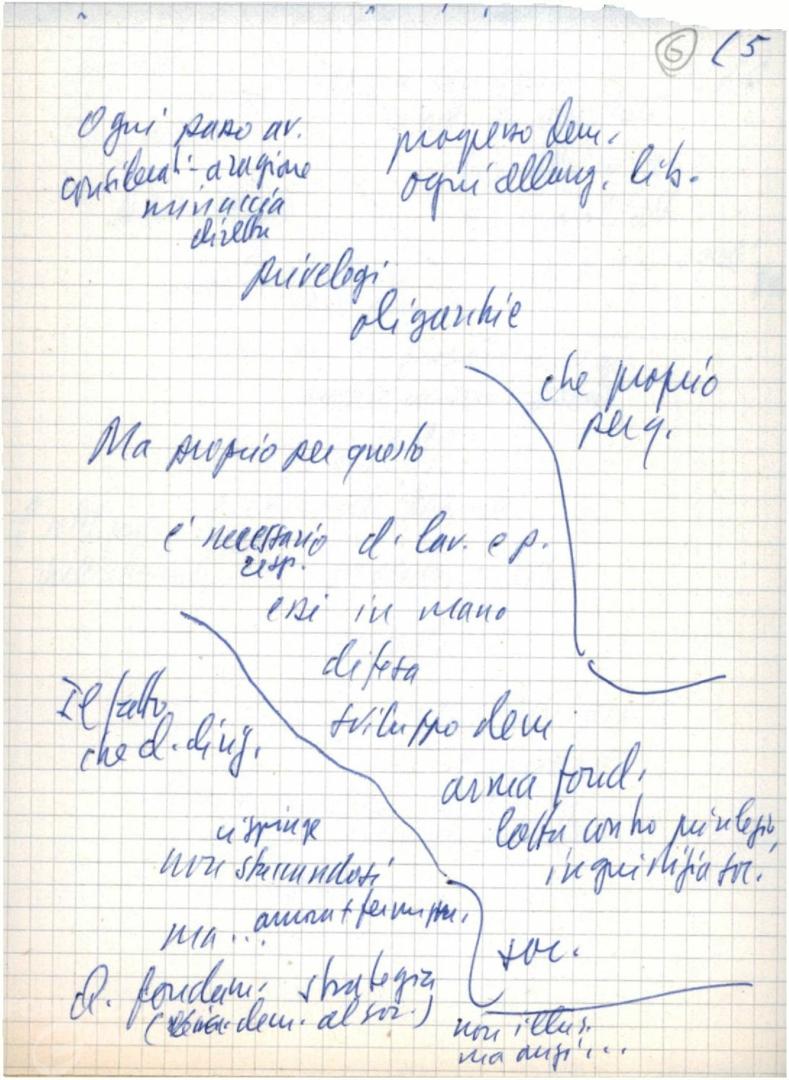 6 (5
Ogni passo av.
progresso dem.
considerati - a ragione
ogni allarg. lib.
minaccia
diretta
privelegi
oligarchie
che proprio
per q.
Ma proprio per questo
è necessario d. lav. e p.
resp.
essi in mano
difesa
sviluppo dem.
Il fatto
che d. ding.
arma fond.
lotta contro privilegi,
ingiustizia soc.
non staccandosi
ma...
soc.
d. fondam. strategia
dem. al soc.)
non illus.
ma anzi...